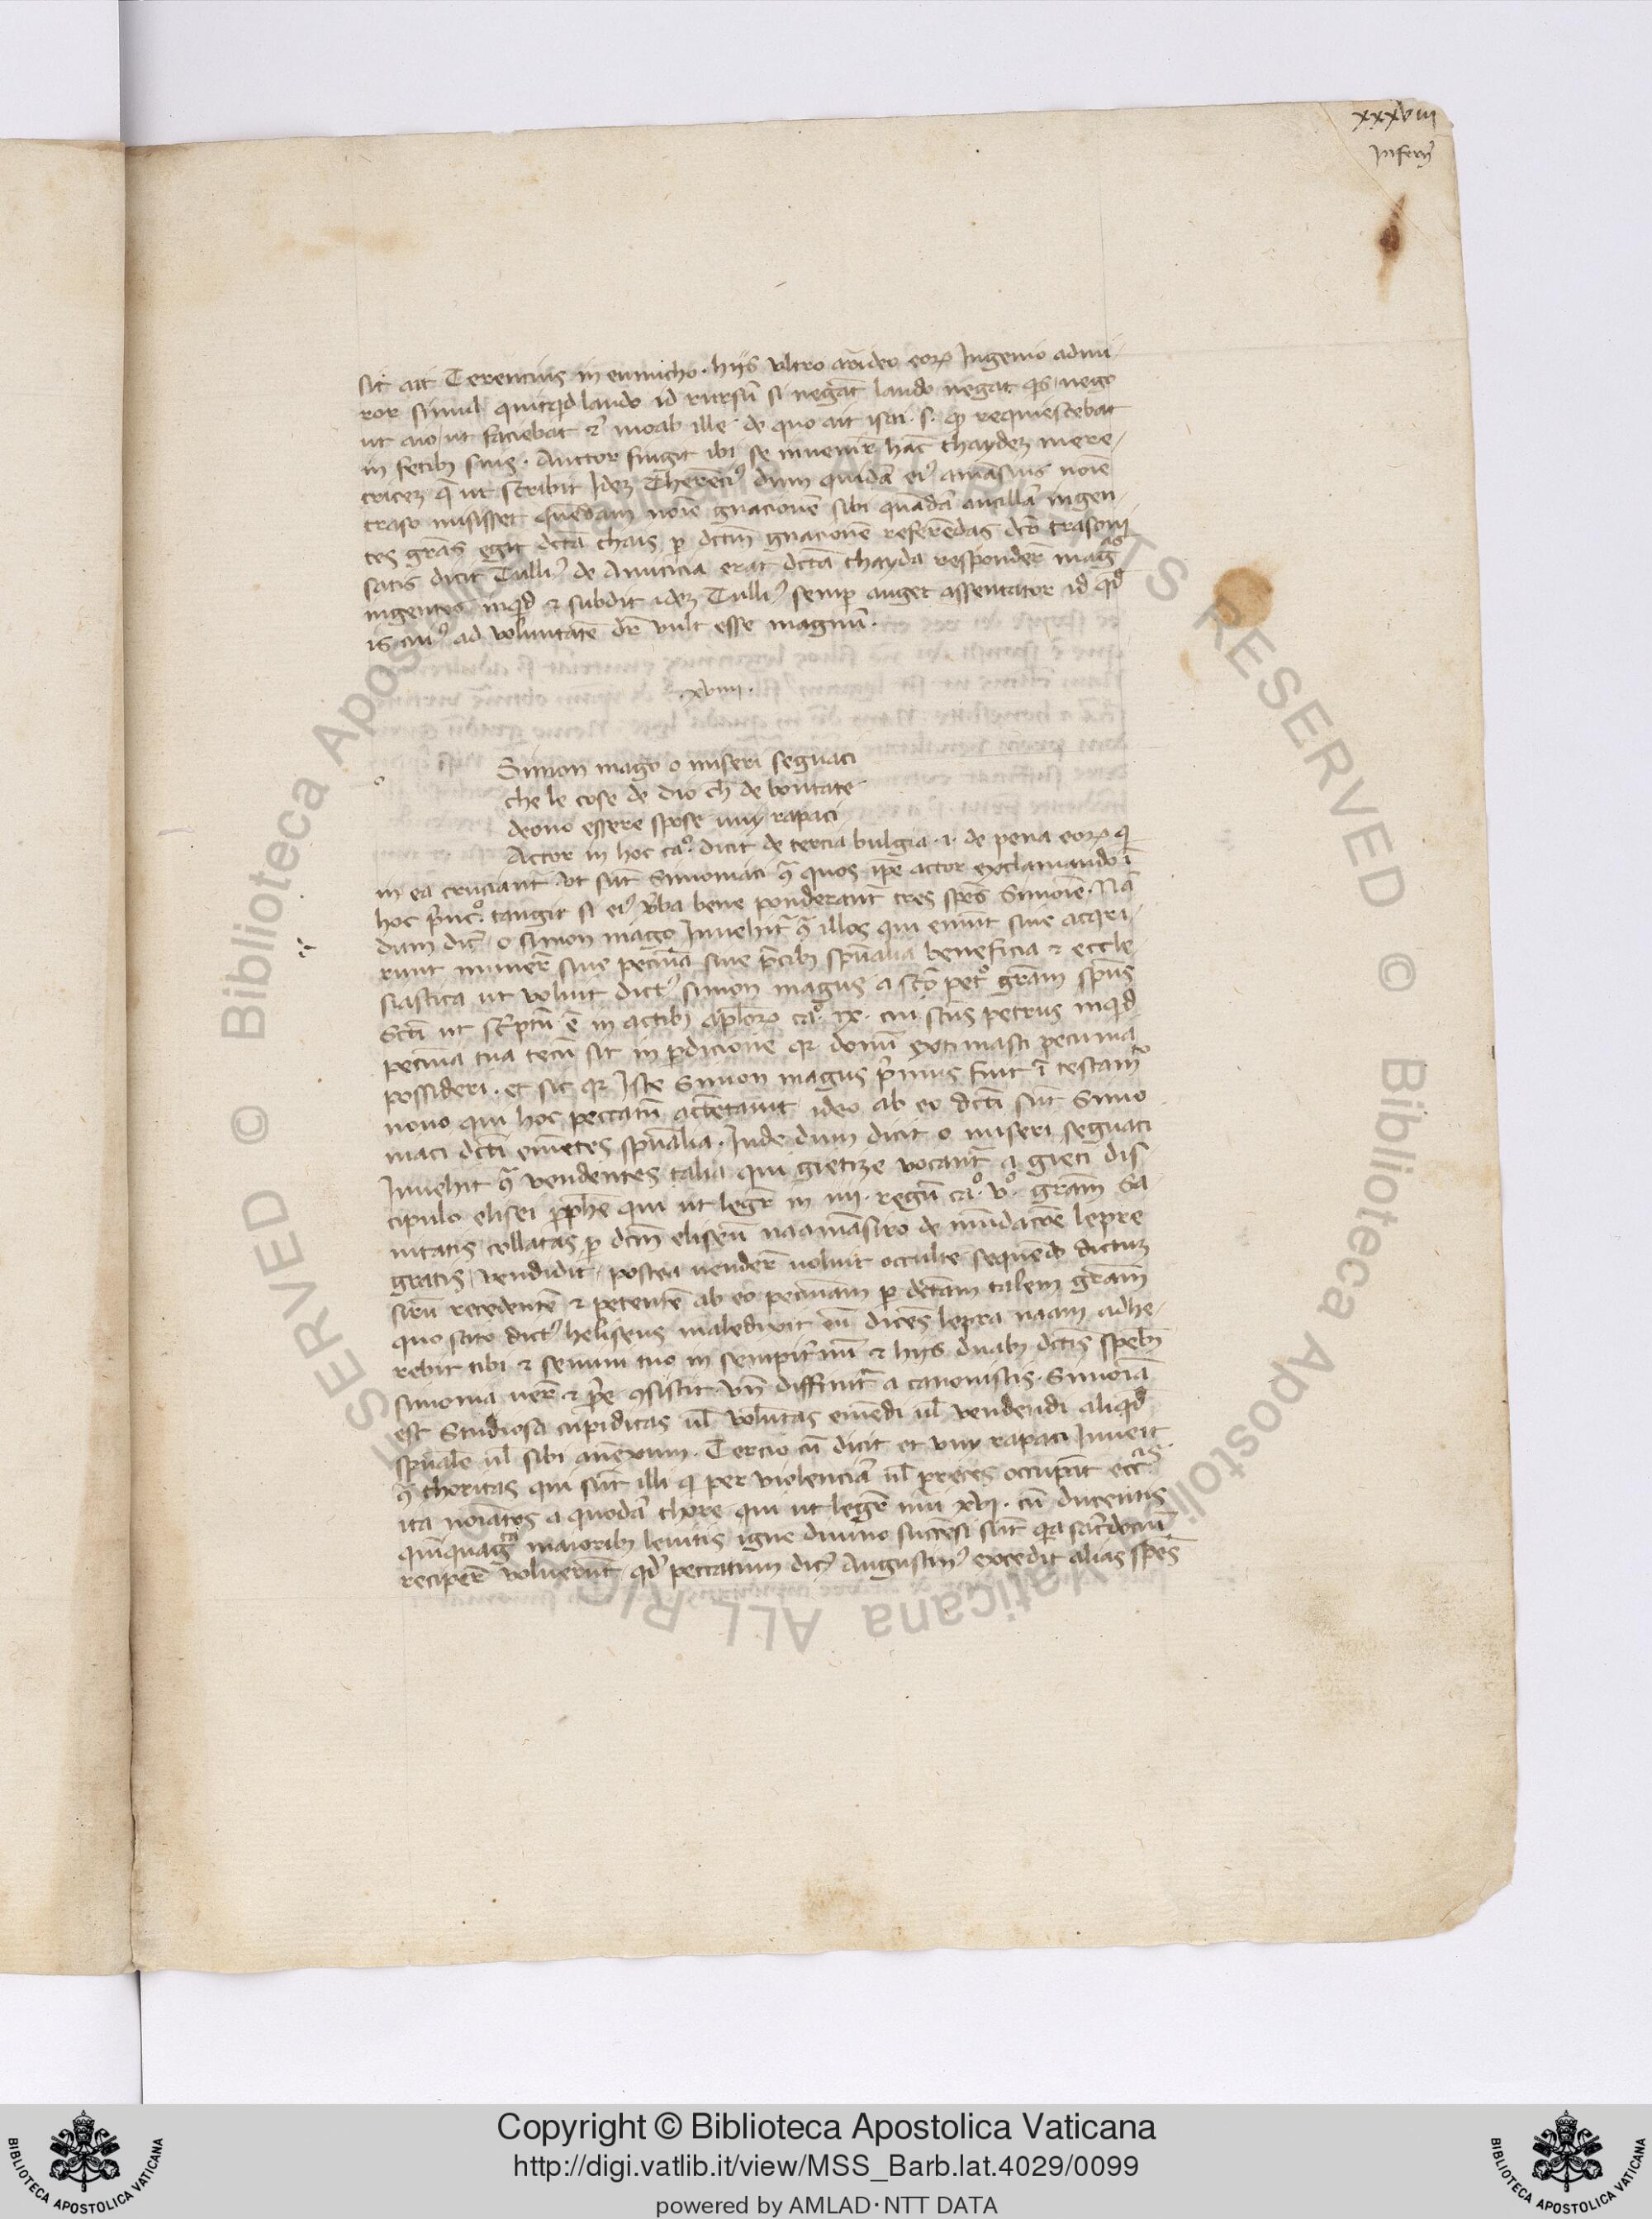 xxxviii
Inferni
sit ait Terencius in eunucho. hijs ultro arrideo eorum Ingenio admi-
ror simul quicquid laudo id rursum si negant laudo negat quis nego
ut aio ut faciebat et moab ille de quo ait isai. s. quod requiescebat
in fecibus suis. Auctor fingit ibi se invenire hanc thaydem mere-
tricem que ut scribit Idem Therencius dum quidam eius amasius nomine
traso misisset quendam nomine gnacionem sibi quandam ancillam ingen-
tes gratias egit dicta thais per dictum gnacionem referendas dicto trasoni
satis dicit Tullius de Amicicia erat dictam thayda respondere magnas
ingentes inquid et subdit idem Tullius semper auget assentator id quod
is cuius ad voluntatem dicitur vult esse magnum.
.xviiii.
Simon mago o miseri seguaci
che le cose de dio che de bontate
deono essere spose vuy rapaci
Actor in hoc cao. dicit de tercia bulgia .i. de pena eorum qui
in ea cruciantur ut sunt Simoniaci contra quos ipse actor exclamando in
hoc princo. tangit si eius verba bene ponderantur tres species Simonie. Nam
dum dicit o simon mago Invehitur contra illos qui emunt sive acqui-
runt munere sive pecunia sive precibus spiritualia beneficia et eccle-
siastica ut voluit dictus simon magus a sancto petro gratiam spiritus
Sancti ut scriptum est in actibus apostolorum cao. ix. cui sanctus petrus inquid
pecunia tua tecum sit in perdicione quia donum extimasti pecunia
possideri. et sic quia Iste Simon magus primus fuit in testamento
novo qui hoc peccatum actentavit ideo ab eo dicti sunt Simo
niaci dicti ementes spiritualia. Inde dum dicit o miseri seguaci
Invehit contra vendentes talia qui gietize vocantur a gieci dis
cipulo elisei prophete qui ut legitur in iiii. regum cao. vo. gratiam sa-
nitatis collatas per dictum eliseum naaman siro de mundacione lepre
gratis vendidit. postea vendere voluit occulte sequendo dictum
sirum recedentem et petentem ab eo pecuniam per dictam talem gratiam
quo scito dictus heliseus maledixit eum dicens lepra naam adhe-
rebit tibi et semini tuo in sempiternum et hijs duabus dictis speciebus
simonia vere et proprie consistit. Unde diffinitur a canonistis. Simonia
est Studiosa cupiditas vel voluntas emendi vel vendendi aliquid
spirituale vel sibi annexum. Tercio cum dicit et vuy rapaci Inveit
contra choritas qui sunt illi qui per violenciam vel preces occupant ecclesias
ita nominatos a quodam chore qui ut legitur nui xvi. cum ducentis
quinquaginta maioribus levitis igne divino succensi sunt quia sacerdocium
recipere voluerunt quod peccatum dicit Augustinus excedit alias species
Copyright © Biblioteca Apostolica Vaticana
http://digi.vatlib.it/view/MSS_Barb.lat.4029/0099
powered by AMLAD·NTT DATA